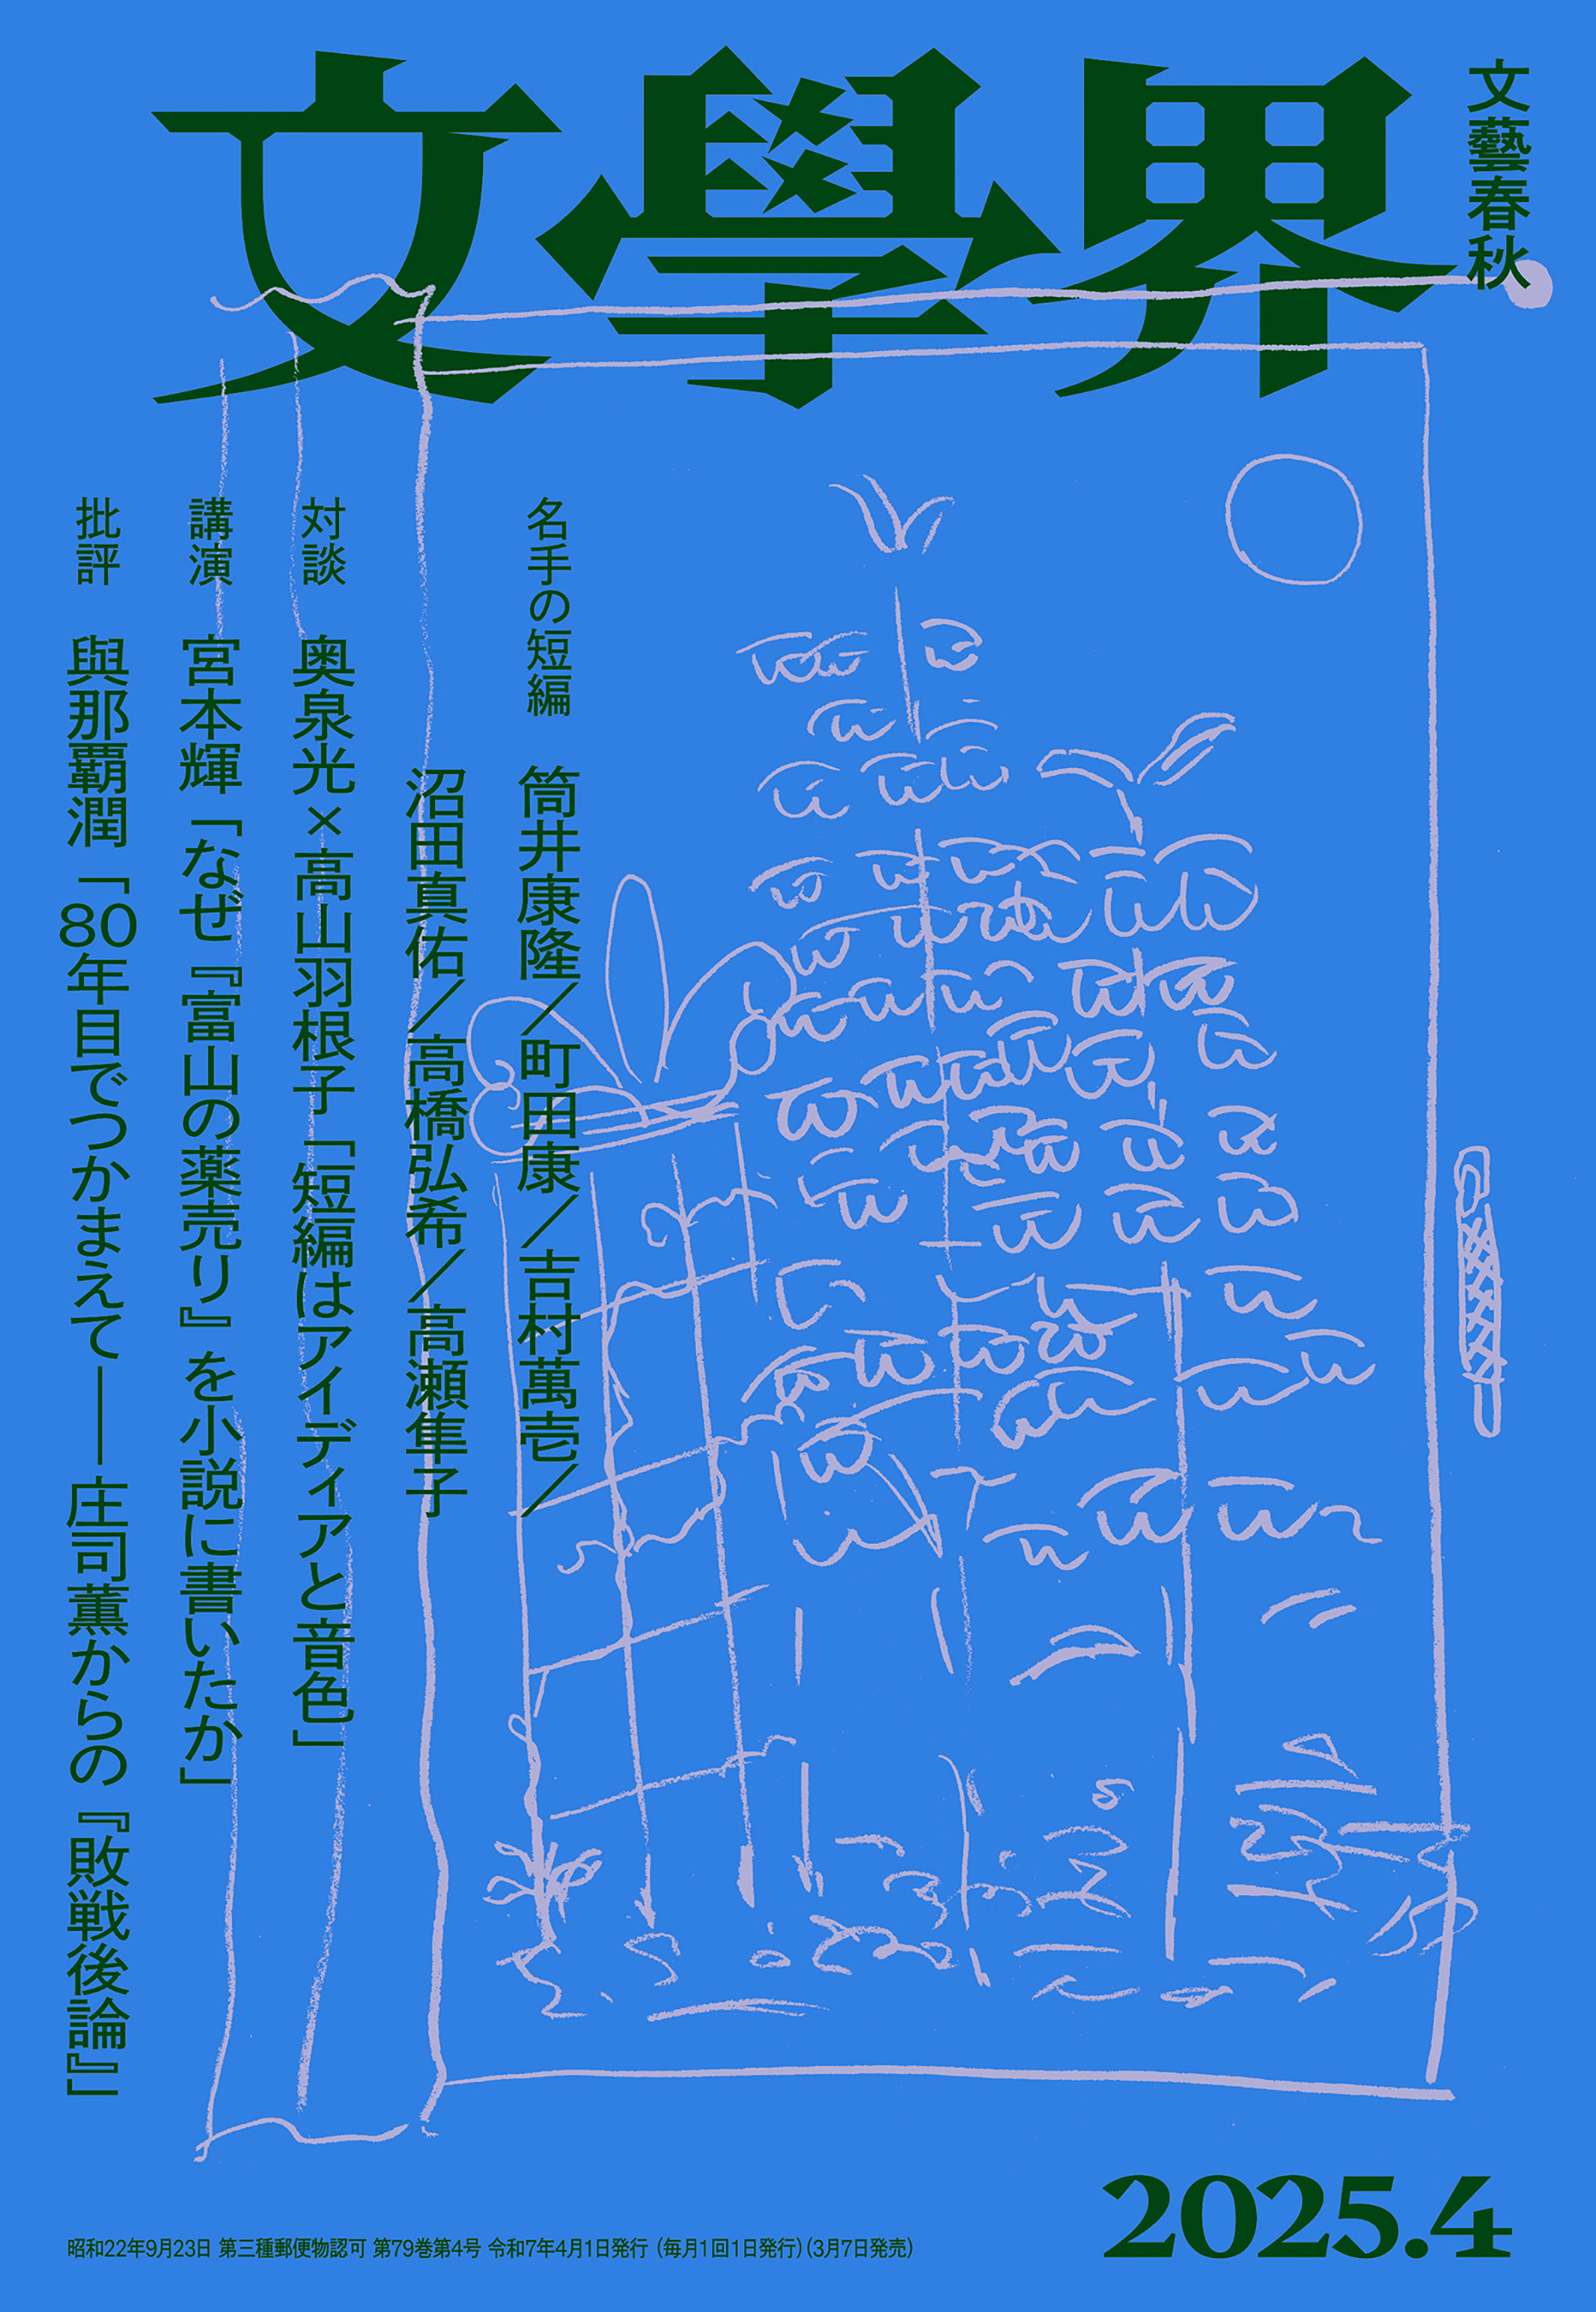 文學界
文藝春秋
名手の短編 筒井康隆／町田康／吉村萬壱／
沼田真佑／高橋弘希／高瀬隼子
対談 奥泉光×高山羽根子「短編はアイディアと音色」
講演 宮本輝「なぜ『富山の薬売り』を小説に書いたか」
批評 與那覇潤「80年目でつかまえて――庄司薫からの『敗戦後論』」
2025.4
昭和22年9月23日 第三種郵便物認可 第79巻第4号 令和7年4月1日発行（毎月1回1日発行）（3月7日発売）